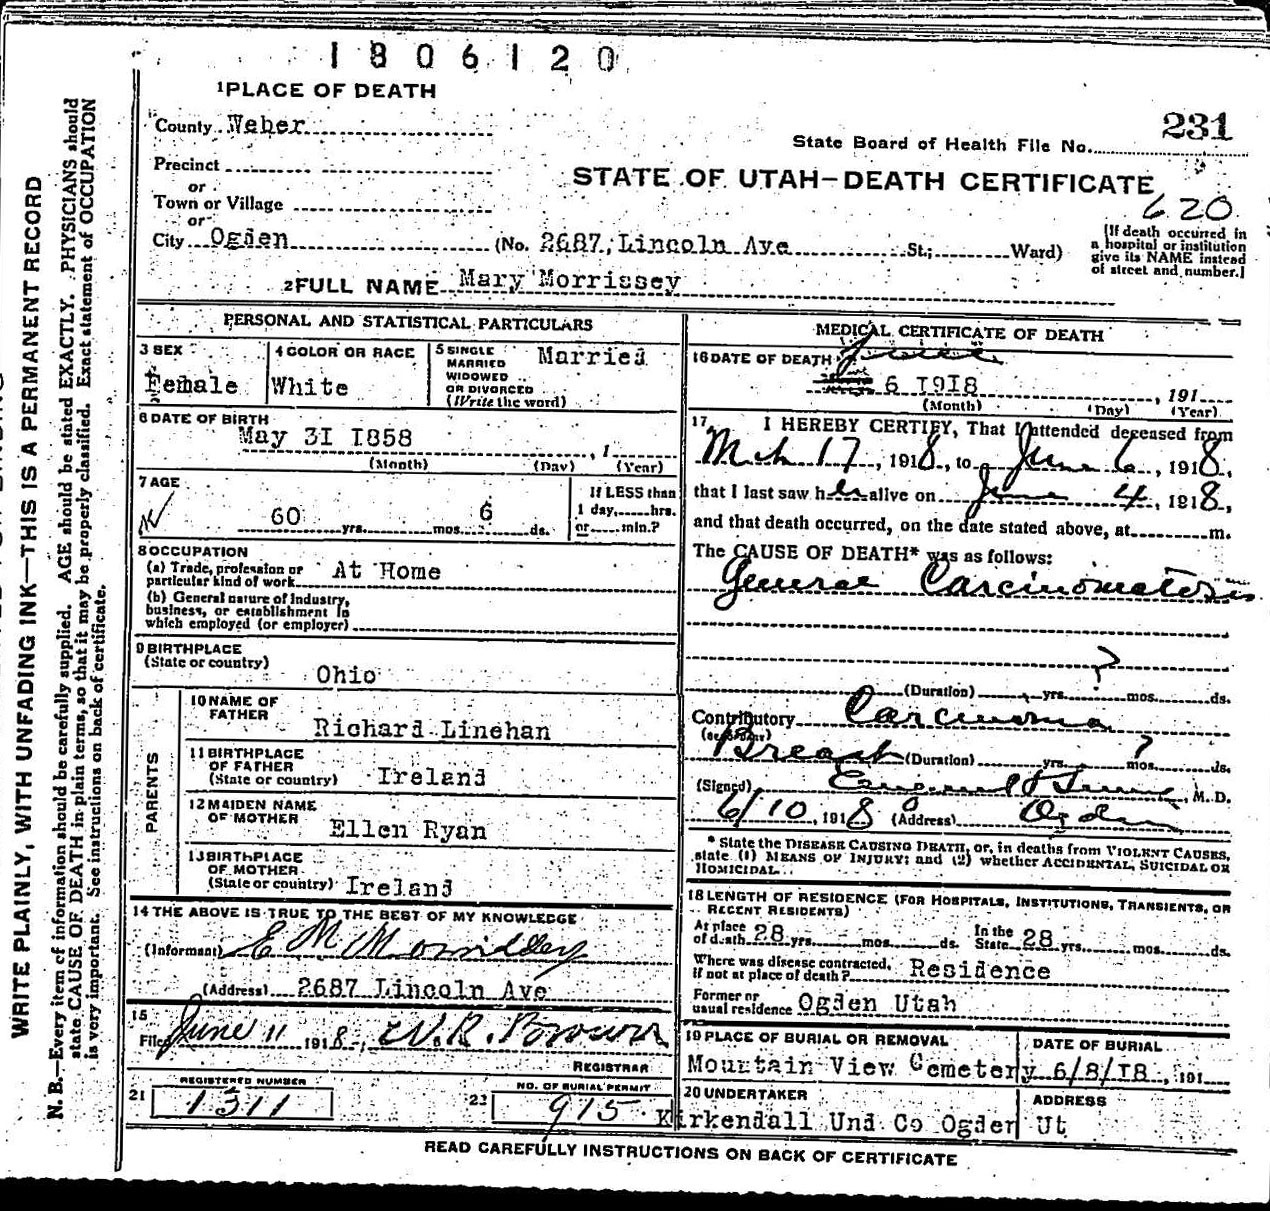 1806120
1 PLACE OF DEATH
County Weber
231
State Board of Health File No.
Precinct
or
STATE OF UTAH—DEATH CERTIFICATE
Town or Village
or
620
City Ogden (No. 2687, Lincoln Ave St; Ward)
[If death occurred in
a hospital or institution
give its NAME instead
of street and number.]
2 FULL NAME Mary Morrissey
PERSONAL AND STATISTICAL PARTICULARS
3 SEX
Female
4 COLOR OR RACE
White
5 SINGLE
MARRIED
WIDOWED
OR DIVORCED
(Write the word)
Married
6 DATE OF BIRTH
May 3I I858
, 1
(Month) (Day) (Year)
7 AGE
60 yrs. mos. 6 ds.
If LESS than
1 day, hrs.
or min.?
8 OCCUPATION
(a) Trade, profession or
particular kind of work At Home
(b) General nature of Industry,
business, or establishment in
which employed (or employer)
9 BIRTHPLACE
(State or country)
Ohio
PARENTS
10 NAME OF
FATHER
Richard Linehan
11 BIRTHPLACE
OF FATHER
(State or country) Ireland
12 MAIDEN NAME
OF MOTHER
Ellen Ryan
13 BIRTHPLACE
OF MOTHER
(State or country) Ireland
14 THE ABOVE IS TRUE TO THE BEST OF MY KNOWLEDGE
(Informant) E M Morrissey
(Address) 2687 Lincoln Ave
15
Filed June 11 1918, W. R. Brown
REGISTRAR
REGISTERED NUMBER
21 1311
NO. OF BURIAL PERMIT
22 915
MEDICAL CERTIFICATE OF DEATH
16 DATE OF DEATH June
6 I9I8 , 191
(Month) (Day) (Year)
17 I HEREBY CERTIFY, That I attended deceased from
Mch 17, 1918, to June 6, 1918,
that I last saw her alive on June 4, 1918,
and that death occurred, on the date stated above, at m.
The CAUSE OF DEATH* was as follows:
General Carcinomatosis
?
(Duration) yrs. mos. ds.
Contributory Carcinoma
Breast (Duration) yrs. ? mos. ds.
(Signed) , M. D.
6/10, 1918 (Address) Ogden
* State the DISEASE CAUSING DEATH, or, in deaths from VIOLENT CAUSES,
state (1) MEANS OF INJURY; and (2) whether ACCIDENTAL, SUICIDAL OR
HOMICIDAL.
18 LENGTH OF RESIDENCE (FOR HOSPITALS, INSTITUTIONS, TRANSIENTS, OR
RECENT RESIDENTS)
At place
of death 28 yrs. mos. ds.
In the
State 28 yrs. mos. ds.
Where was disease contracted,
if not at place of death? Residence
Former or
usual residence Ogden Utah
19 PLACE OF BURIAL OR REMOVAL
Mountain View Cemetery
DATE OF BURIAL
6/8/I8, 191
20 UNDERTAKER
Kirkendall Und Co Ogden
ADDRESS
Ut
READ CAREFULLY INSTRUCTIONS ON BACK OF CERTIFICATE
WRITE PLAINLY, WITH UNFADING INK—THIS IS A PERMANENT RECORD
N. B.—Every item of information should be carefully supplied. AGE should be stated EXACTLY. PHYSICIANS should
state CAUSE OF DEATH in plain terms, so that it may be properly classified. Exact statement of OCCUPATION
is very important. See instructions on back of certificate.